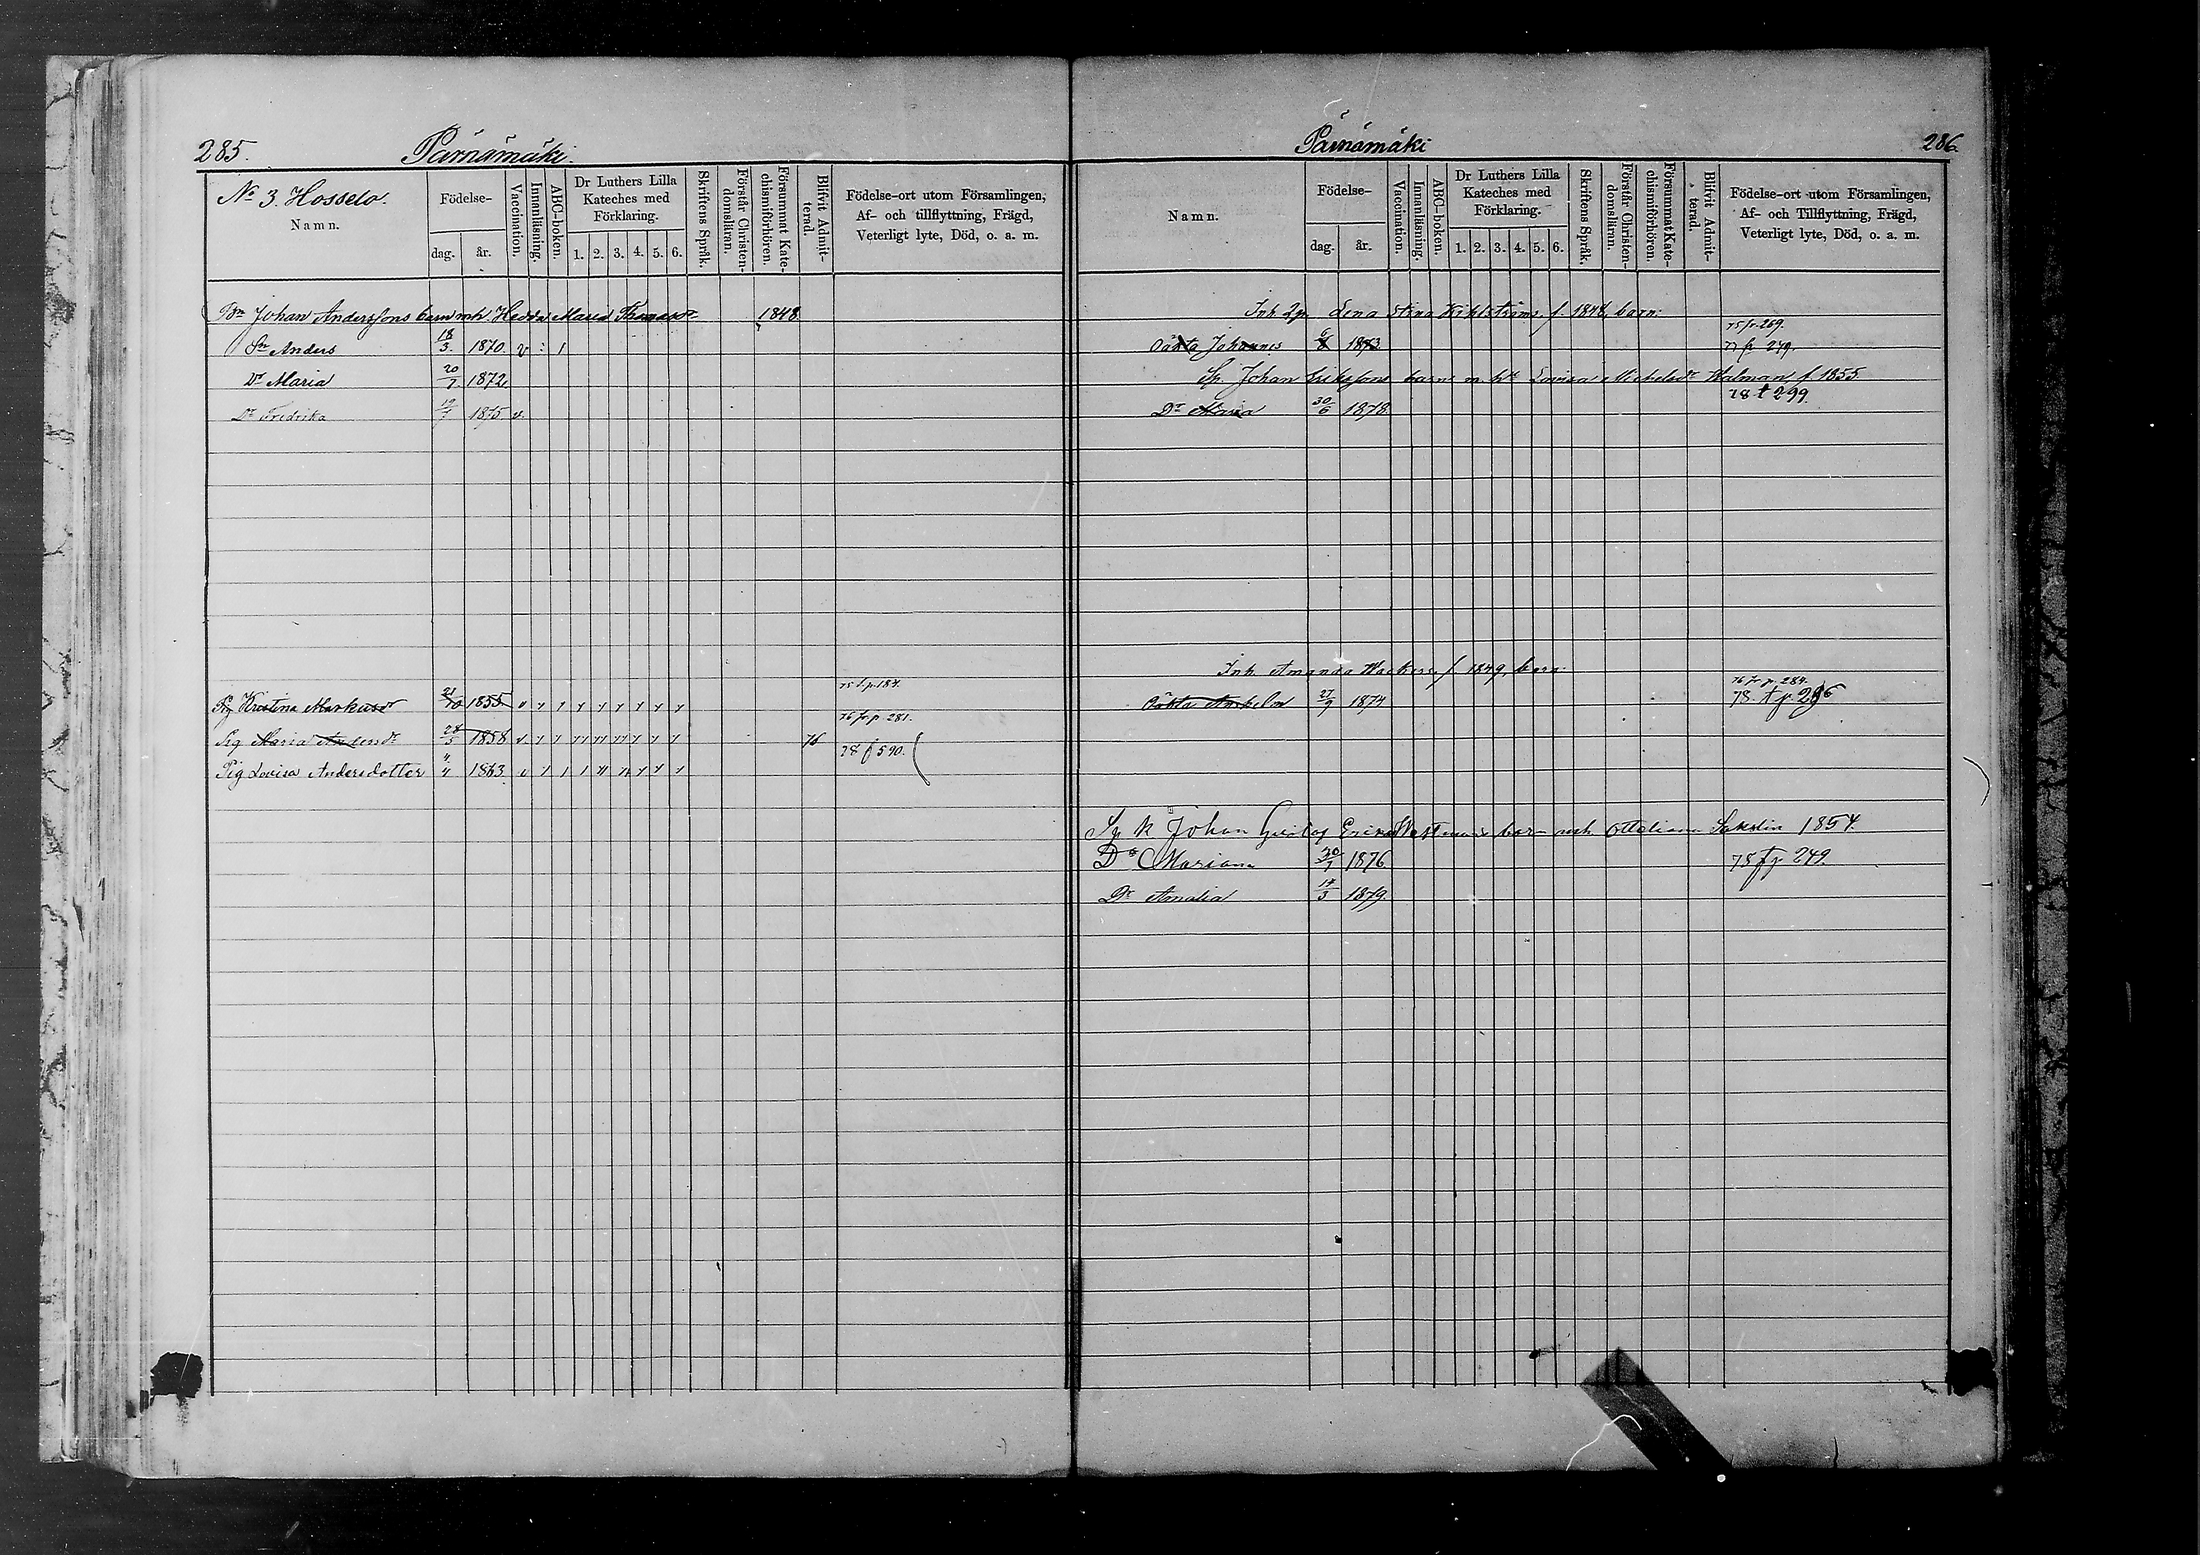 285. Pärnämäki.
No 3. Hosselo.
Namn.
Födelse-
dag. år.
Vaccination.
Innanläsning.
ABC-boken.
Dr Luthers Lilla Kateches med Förklaring.
1. 2. 3. 4. 5. 6.
Skriftens Språk.
Förstår Christendomsläran.
Försummat Katechismiförhören.
Blifvit Admitterad.
Födelse-ort utom Församlingen,
Af- och tillflyttning, Frägd,
Veterligt lyte, Död, o. a. m.
Bn Johan Anderssons barn mh. Hedda Maria Thomasdr 1848.
Sn Anders 18/3. 1870. v : 1
Dr Maria 20/7. 1872.
Dr Fredrika 19/7 1875 v.
75 t. p. 184.
Pig Kristina Markusdr 21/10 1855 v
76 fr p. 281.
Pig Maria Andersdr 28/5 1858 v. 76
78 f 590.
Pig Lovisa Andersdotter 4/4 1863 v
Pärnämäki 286.
Namn.
Födelse-
dag. år.
Vaccination.
Innanläsning.
ABC-boken.
Dr Luthers Lilla Kateches med Förklaring.
1. 2. 3. 4. 5. 6.
Skriftens Språk.
Förstår Christendomsläran.
Försummat Katechismiförhören.
Blifvit Admitterad.
Födelse-ort utom Församlingen,
Af- och Tillflyttning, Frägd,
Veterligt lyte, Död, o. a. m.
Inh. Qp. Lena Stina Kihlströms f. 1848, barn:
75 fr. 269.
Oäkta Johannes 1873. 77 fr 249.
Sp. Johan Erikssons barn m. h. Lovisa Michelsdr Walman f. 1855
78 t 299.
Dr Maria 30/6 1878.
Inh. Amanda Wackers f. 1849, barn:
76 fr p. 284.
Oäkta Anshelm 27/9 1874 78. t p. 296
Sp k Johan Gustaf Westmans barn mh Ottiliana Sakslin 1854.
Dr Mariana 20/7 1876. 78 f p 249.
Dr Amalia 14/3 1879.